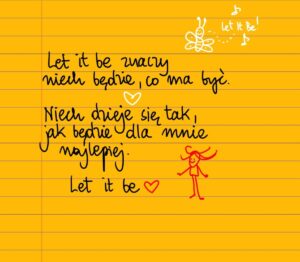 Let It Be!
Let it be znaczy
niech będzie, co ma być.
Niech dzieje się tak,
jak będzie dla mnie
najlepiej.
Let it be